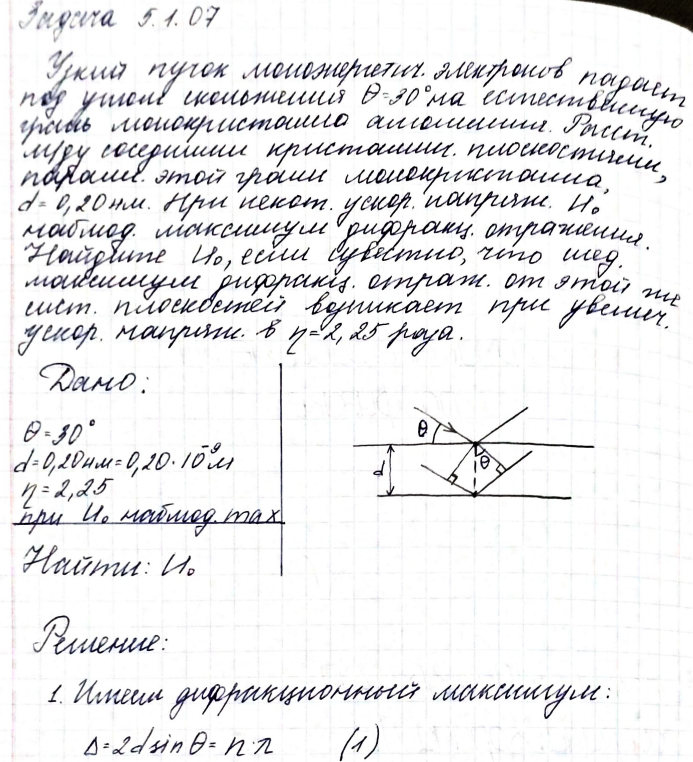 Задача 5.1.07
Узкий пучок моноэнергетич. электронов падает
под углом скольжения θ=30° на естественную
грань монокристалла алюминия. Расст.
м/ду соседними кристаллич. плоскостями,
паралл. этой грани монокристалла,
d=0,20 нм. При некот. ускор. напряж. U₀
наблюд. максимум дифракц. отражения.
Найдите U₀, если известно, что след.
максимум дифракц. отраж. от этой же
сист. плоскостей возникает при увелич.
ускор. напряж. в η=2,25 раза.
Дано:
θ=30°
d=0,20нм=0,20·10⁻⁹м
η=2,25
при U₀ наблюд. max
Найти: U₀
θ
d
θ
Решение:
1. Имеем дифракционный максимум:
Δ=2dsinθ=n·λ (1)